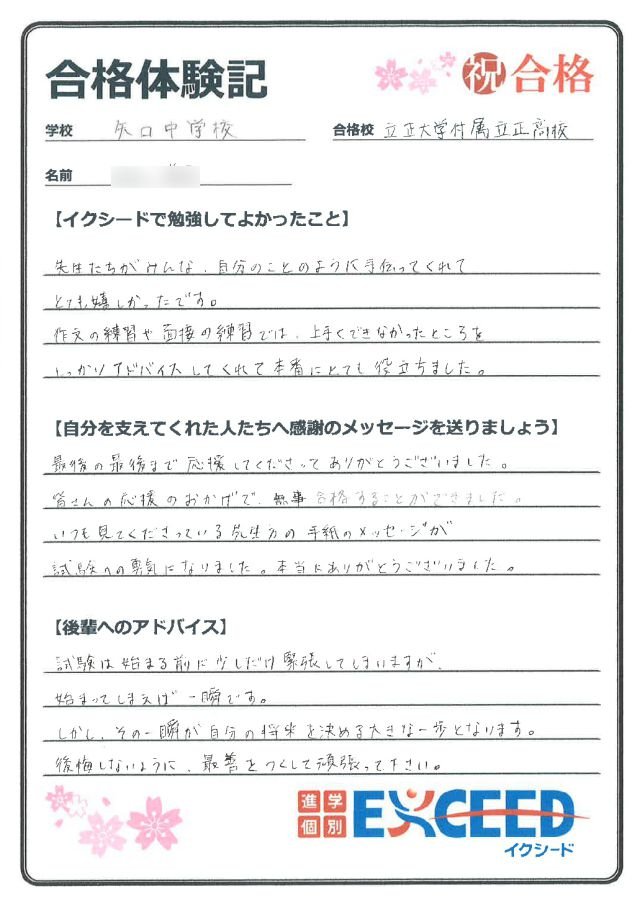 合格体験記
祝 合格
学校 矢口中学校
合格校 立正大学付属立正高校
名前
【イクシードで勉強してよかったこと】
先生たちがみんな、自分のことのように手伝ってくれて
とても嬉しかったです。
作文の練習や面接の練習では、上手くできなかったところを
しっかりアドバイスしてくれて本番にとても役立ちました。
【自分を支えてくれた人たちへ感謝のメッセージを送りましょう】
最後の最後まで応援してくださってありがとうございました。
皆さんの応援のおかげで、無事合格することができました。
いつも見てくださっている先生方の手紙のメッセージが
試験への勇気になりました。本当にありがとうございました。
【後輩へのアドバイス】
試験は始まる前に少しだけ緊張してしまいますが、
始まってしまえば一瞬です。
しかし、その一瞬が自分の将来を決める大きな一歩となります。
後悔しないように、最善をつくして頑張って下さい。
進学
個別
EXCEED
イクシード